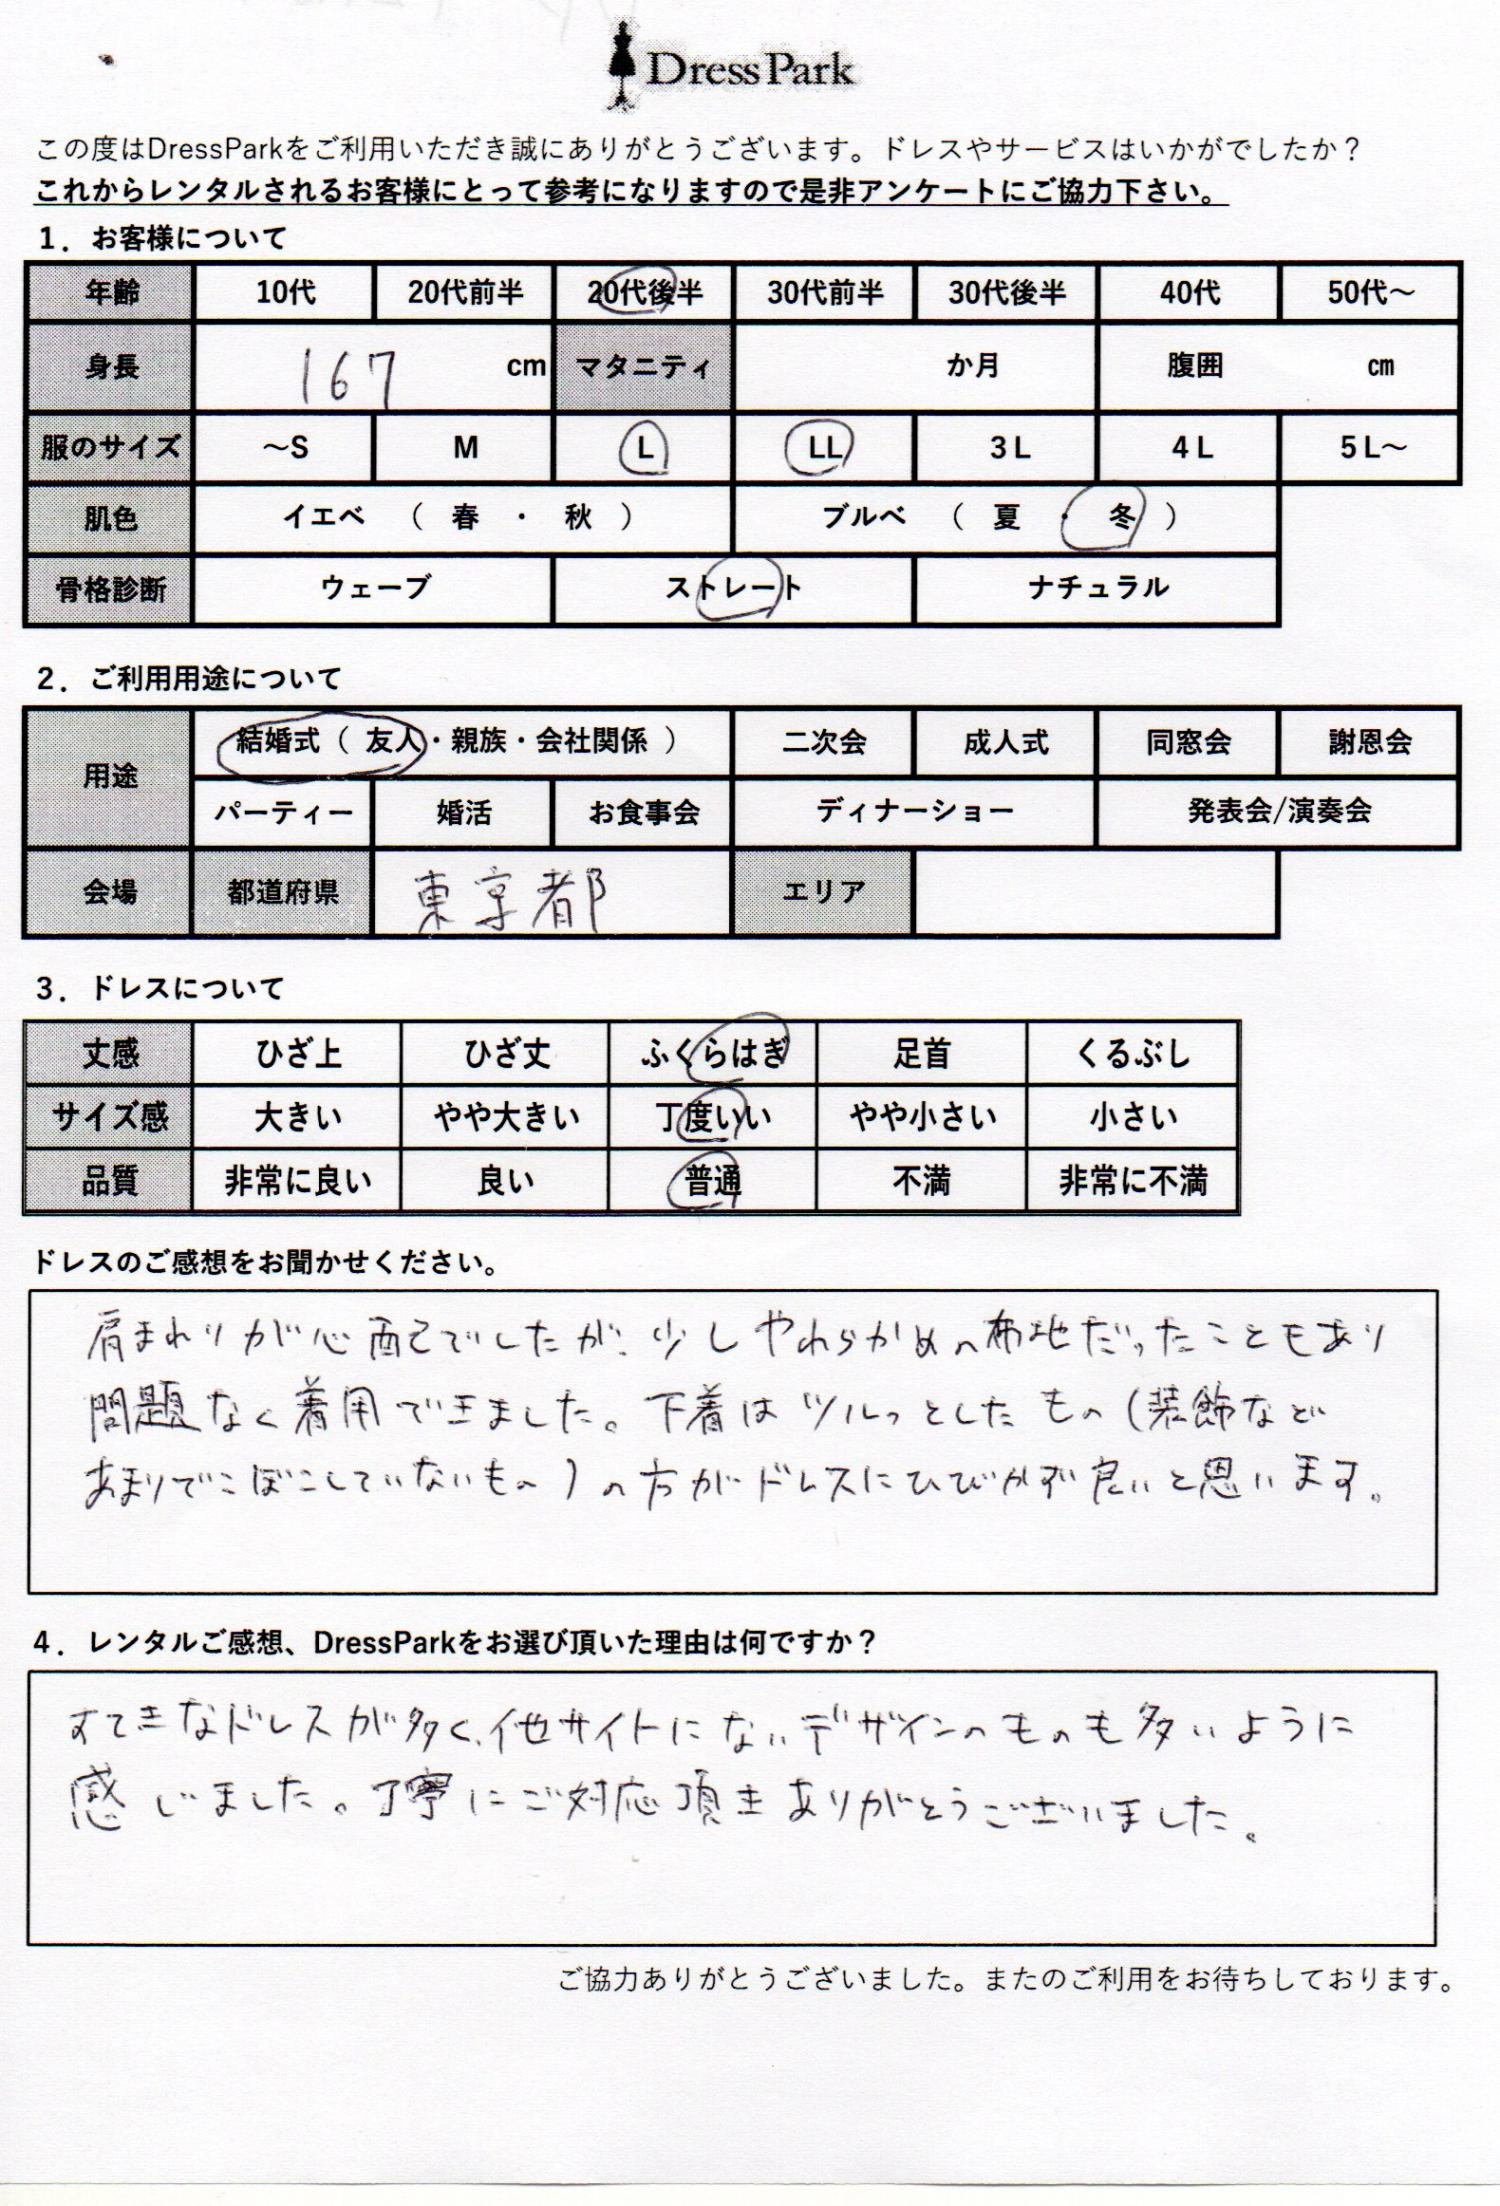 DressPark
この度はDressParkをご利用いただき誠にありがとうございます。ドレスやサービスはいかがでしたか？
これからレンタルされるお客様にとって参考になりますので是非アンケートにご協力下さい。
1．お客様について
年齢 10代 20代前半 20代後半 30代前半 30代後半 40代 50代～
身長 167 cm マタニティ か月 腹囲 ㎝
服のサイズ ～S M L LL 3L 4L 5L～
肌色 イエベ （ 春 ・ 秋 ） ブルベ （ 夏 ・ 冬 ）
骨格診断 ウェーブ ストレート ナチュラル
2．ご利用用途について
用途 結婚式（ 友人・親族・会社関係 ） 二次会 成人式 同窓会 謝恩会
パーティー 婚活 お食事会 ディナーショー 発表会/演奏会
会場 都道府県 東京都 エリア
3．ドレスについて
丈感 ひざ上 ひざ丈 ふくらはぎ 足首 くるぶし
サイズ感 大きい やや大きい 丁度いい やや小さい 小さい
品質 非常に良い 良い 普通 不満 非常に不満
ドレスのご感想をお聞かせください。
肩まわりが心配でしたが、少しやわらかめの布地だったこともあり
問題なく着用できました。下着はツルっとしたもの（装飾など
あまりでこぼこしていないもの）の方がドレスにひびかず良いと思います。
4．レンタルご感想、DressParkをお選び頂いた理由は何ですか？
すてきなドレスが多く、他サイトにないデザインのものも多いように
感じました。丁寧にご対応頂きありがとうございました。
ご協力ありがとうございました。またのご利用をお待ちしております。